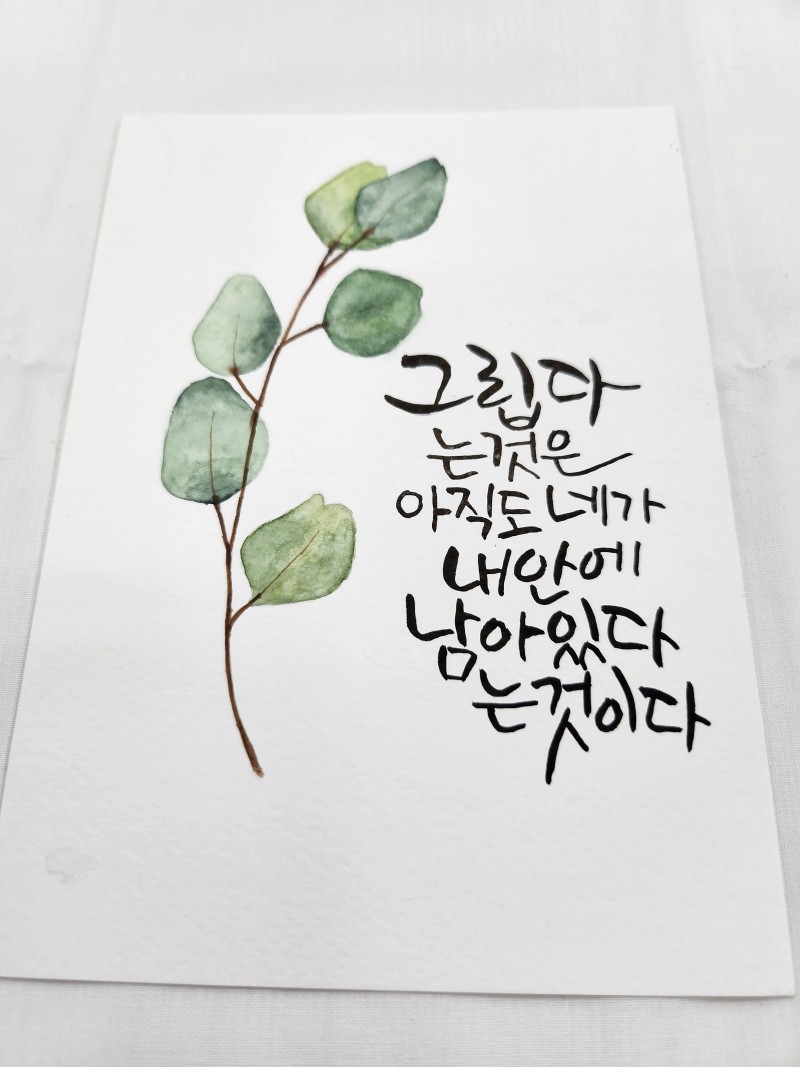 그립다
는것은
아직도네가
내안에
남아있다
는것이다